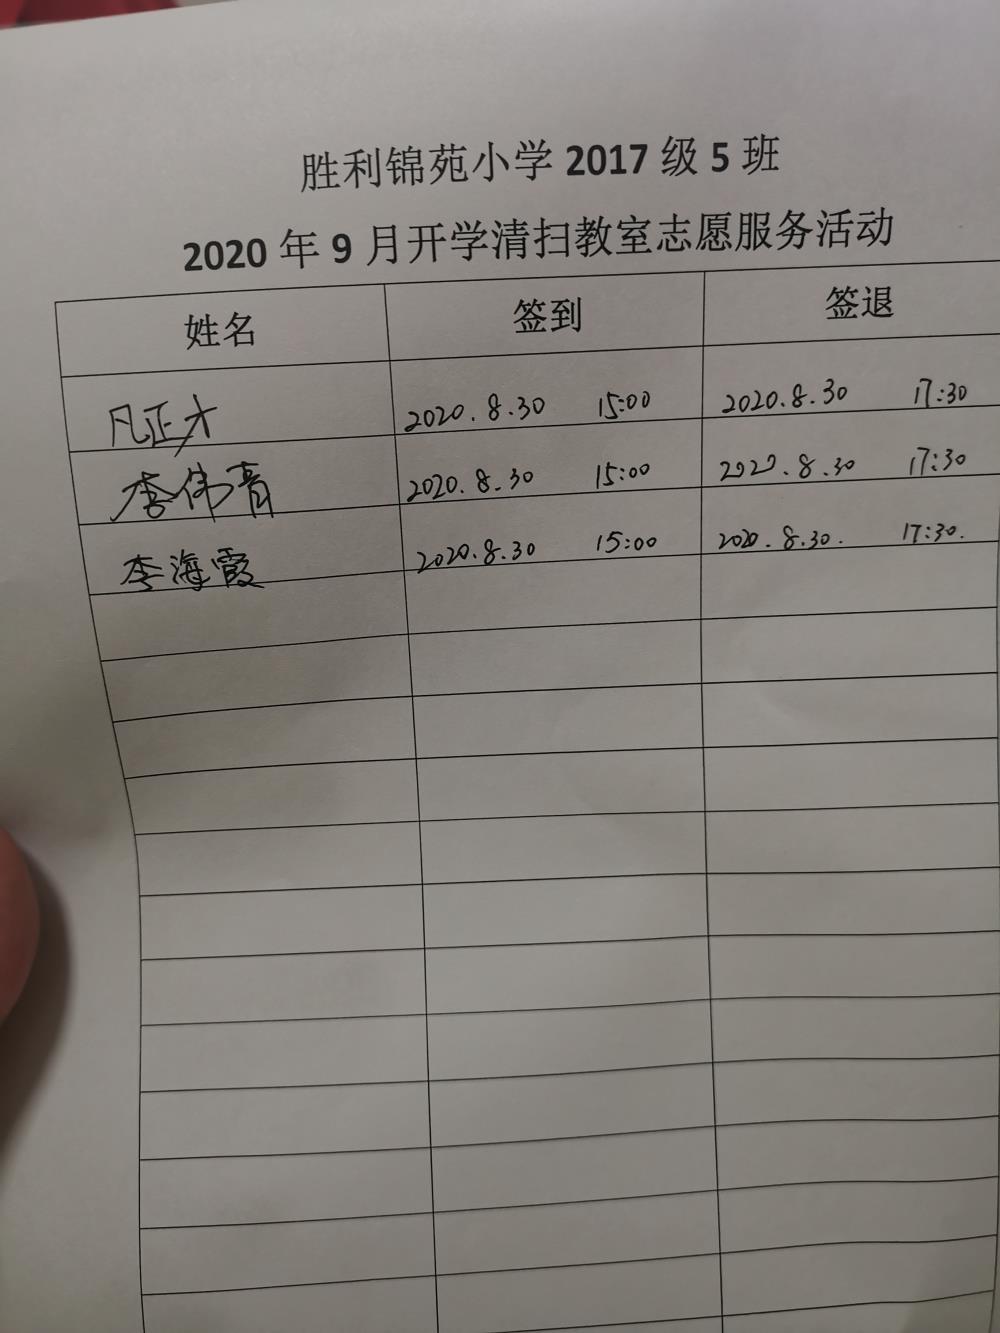 胜利锦苑小学 2017 级 5 班
2020 年 9 月开学清扫教室志愿服务活动
姓名 签到 签退
凡正才 2020.8.30 15:00 2020.8.30 17:30
李伟青 2020.8.30 15:00 2020.8.30 17:30
李海霞 2020.8.30 15:00 2020.8.30. 17:30.